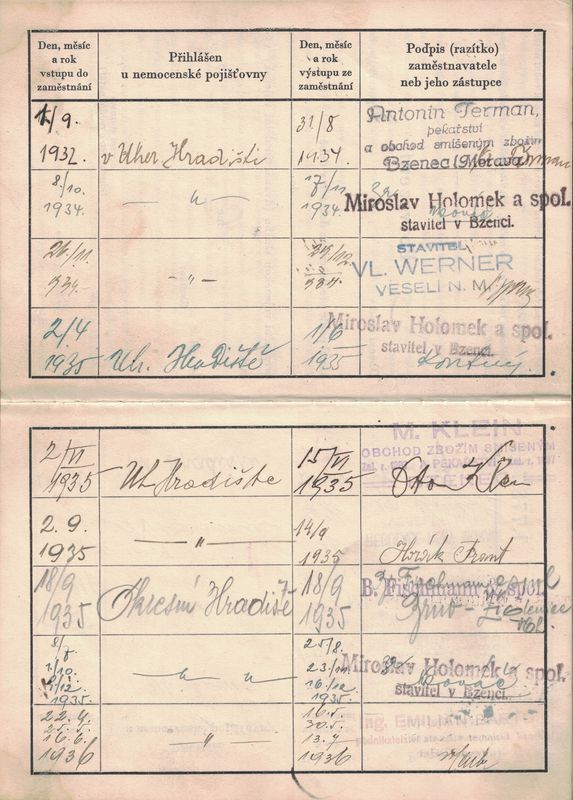 Den, měsíc
a rok
vstupu do
zaměstnání
Přihlášen
u nemocenské pojišťovny
Den, měsíc
a rok
výstupu ze
zaměstnání
Podpis (razítko)
zaměstnavatele
neb jeho zástupce
1/9.
1932.
v Uher. Hradišti
31/8
1934.
Antonín Terman,
pekařství
a obchod smíšeným zbožím
Bzenec (Morava)
8./10.
1934.
— „ —
17/11
1934.
Miroslav Holomek a spol.
stavitel v Bzenci.
26./11.
934.
— „ —
22./12.
934.
STAVITEL
VL. WERNER
VESELÍ N. M.
2/4
1935
Uh. Hradiště
1/6
1935
Miroslav Holomek a spol.
stavitel v Bzenci.
2/VI
1935
Uh Hradište
15/VI
1935
M. KLEIN
OBCHOD ZBOŽÍM SMÍŠENÝM
Otto Klein
2. 9.
1935
— „ —
14/9
1935
Horák Frant
18/9
1935
Okresní Hradiště
18/9
1935
B. Fischmann a spol.
8/7
1/10.
1/12
1935.
— „ —
25/8.
23/11
16/12
1935.
Miroslav Holomek a spol.
stavitel v Bzenci.
Kovář
22. 4.
16. 6.
1936
„
16. 5.
30. 5.
13. 7
1936
Ing. EMILIAN